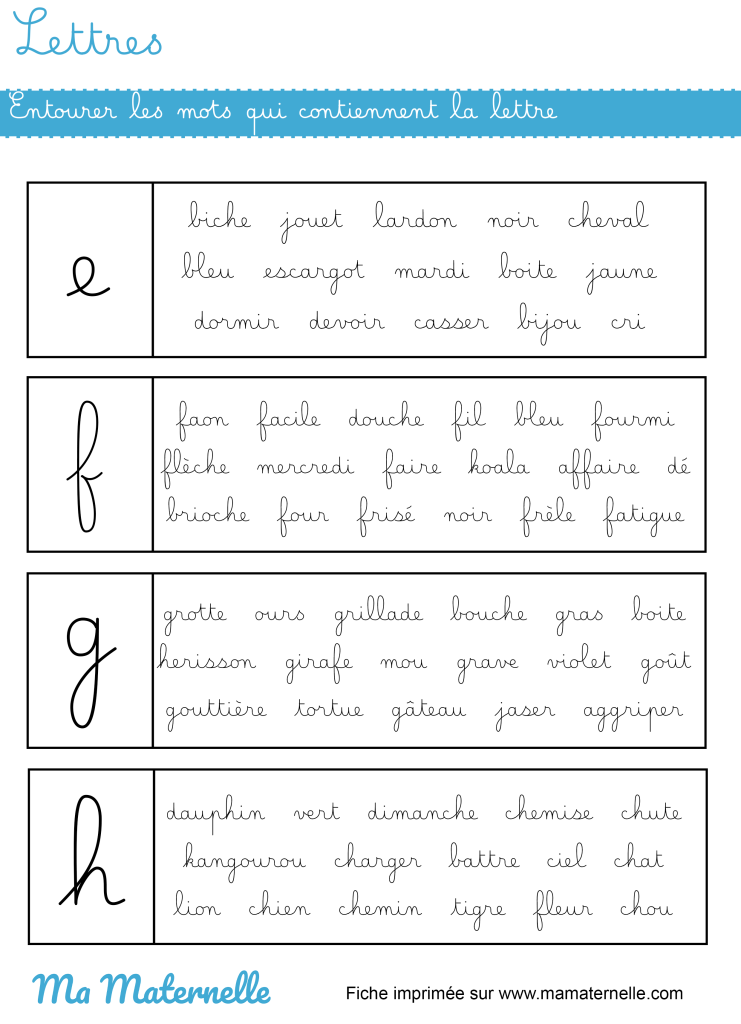 Lettres
Entourer les mots qui contiennent la lettre
e
biche jouet lardon noir cheval
bleu escargot mardi boite jaune
dormir devoir casser bijou cri
f
faon facile douche fil bleu fourmi
flèche mercredi faire koala affaire dé
brioche four frisé noir frèle fatigue
g
grotte ours grillade bouche gras boite
herisson girafe mou grave violet goût
gouttière tortue gâteau jaser aggriper
h
dauphin vert dimanche chemise chute
kangourou charger battre ciel chat
lion chien chemin tigre fleur chou
Ma Maternelle
Fiche imprimée sur www.mamaternelle.com